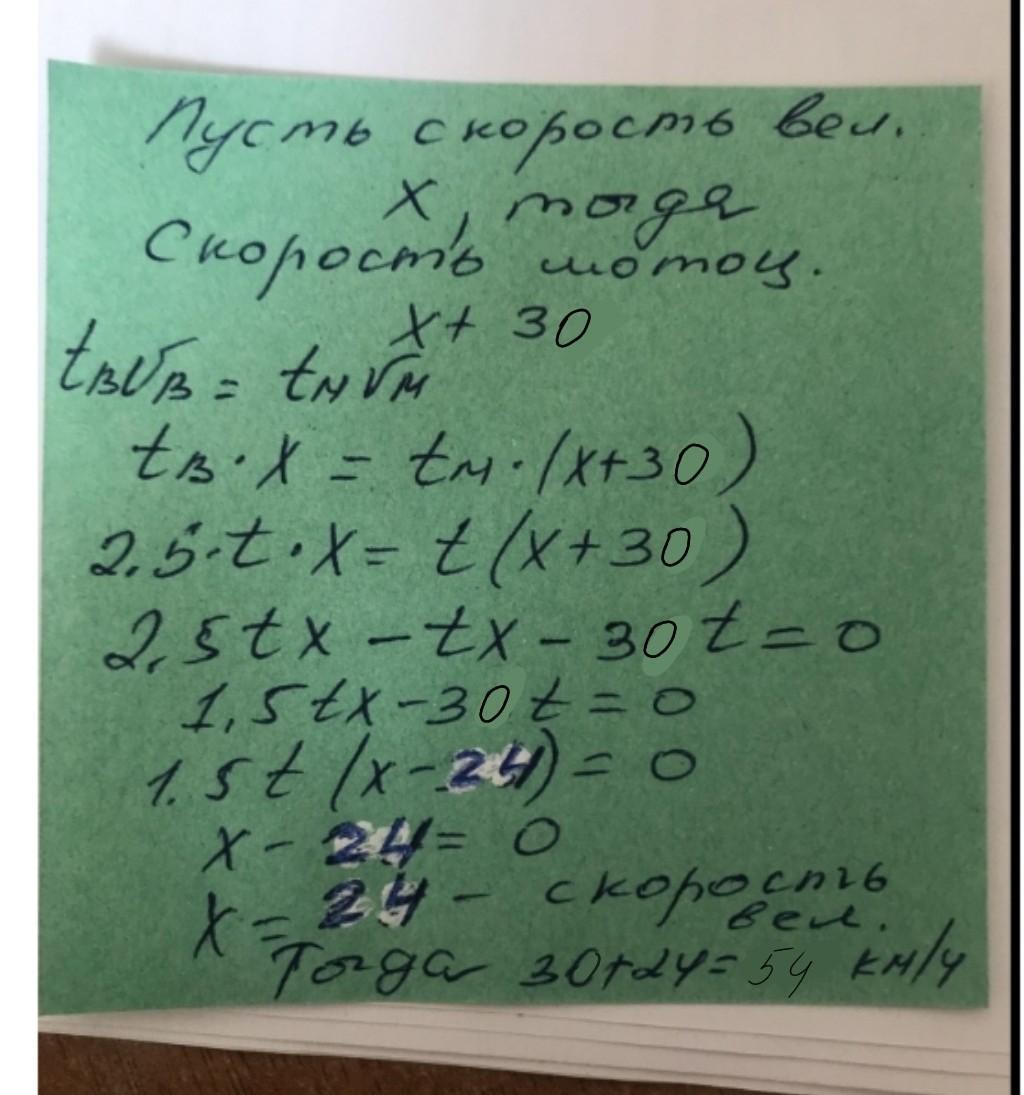 Пусть скорость вел.
x, тогда
Скорость мотоц.
x + 30
tвVв = tмVм
tв · x = tм · (x+30)
2.5·t · x = t(x+30)
2.5tx - tx - 30t = 0
1,5tx - 30t = 0
1.5t (x-24) = 0
x - 24 = 0
x = 24 - скорость
вел.
Тогда 30+24= 54 км/ч